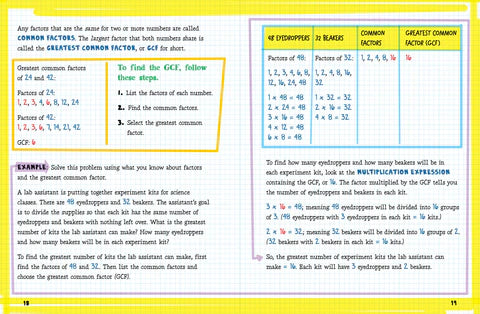 Any factors that are the same for two or more numbers are called
COMMON FACTORS. The largest factor that both numbers share is
called the GREATEST COMMON FACTOR, or GCF for short.
Greatest common factors
of 24 and 42:
Factors of 24:
1, 2, 3, 4, 6, 8, 12, 24
Factors of 42:
1, 2, 3, 6, 7, 14, 21, 42
GCF: 6
To find the GCF, follow
these steps.
1. List the factors of each number.
2. Find the common factors.
3. Select the greatest common
factor.
EXAMPLE: Solve this problem using what you know about factors
and the greatest common factor.
A lab assistant is putting together experiment kits for science
classes. There are 48 eyedroppers and 32 beakers. The assistant's goal
is to divide the supplies so that each kit has the same number of
eyedroppers and beakers with nothing left over. What is the greatest
number of kits the lab assistant can make? How many eyedroppers
and how many beakers will be in each experiment kit?
To find the greatest number of kits the lab assistant can make, first
find the factors of 48 and 32. Then list the common factors and
choose the greatest common factor (GCF).
18
48 EYEDROPPERS
32 BEAKERS
COMMON
FACTORS
GREATEST COMMON
FACTOR (GCF)
Factors of 48:
1, 2, 3, 4, 6, 8,
12, 16, 24, 48
1 x 48 = 48
2 x 24 = 48
3 x 16 = 48
4 x 12 = 48
6 x 8 = 48
Factors of 32:
1, 2, 4, 8, 16,
32
1 x 32 = 32
2 x 16 = 32
4 x 8 = 32
1, 2, 4, 8, 16
16
To find how many eyedroppers and how many beakers will be in
each experiment kit, look at the MULTIPLICATION EXPRESSION
containing the GCF, or 16. The factor multiplied by the GCF tells you
the number of eyedroppers and beakers in each kit.
3 x 16 = 48, meaning 48 eyedroppers will be divided into 16 groups
of 3. (48 eyedroppers with 3 eyedroppers in each kit = 16 kits.)
2 x 16 = 32, meaning 32 beakers will be divided into 16 groups of 2.
(32 beakers with 2 beakers in each kit = 16 kits.)
So, the greatest number of experiment kits the lab assistant can
make = 16. Each kit will have 3 eyedroppers and 2 beakers.
19